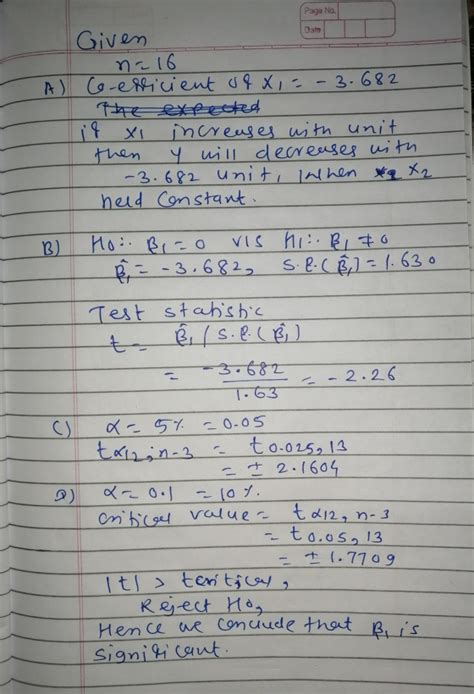 Page No.
Date
Given
n = 16
A) Co-efficient of x1 = -3.682
The expected
if x1 increases with unit
then Y will decreases with
-3.682 unit, when x2
held constant.
B) H0: β1 = 0 v/s H1: β1 ≠ 0
β̂1 = -3.682, S.E.(β̂1) = 1.630
Test statistic
t = β̂1 / S.E.(β̂1)
= -3.682 / 1.63 = -2.26
C) α = 5% = 0.05
tα/2, n-3 = t0.025, 13
= ± 2.1604
D) α = 0.1 = 10%.
critical value = tα/2, n-3
= t0.05, 13
= ± 1.7709
|t| > tcritical,
Reject H0,
Hence we conclude that β1 is
significant.